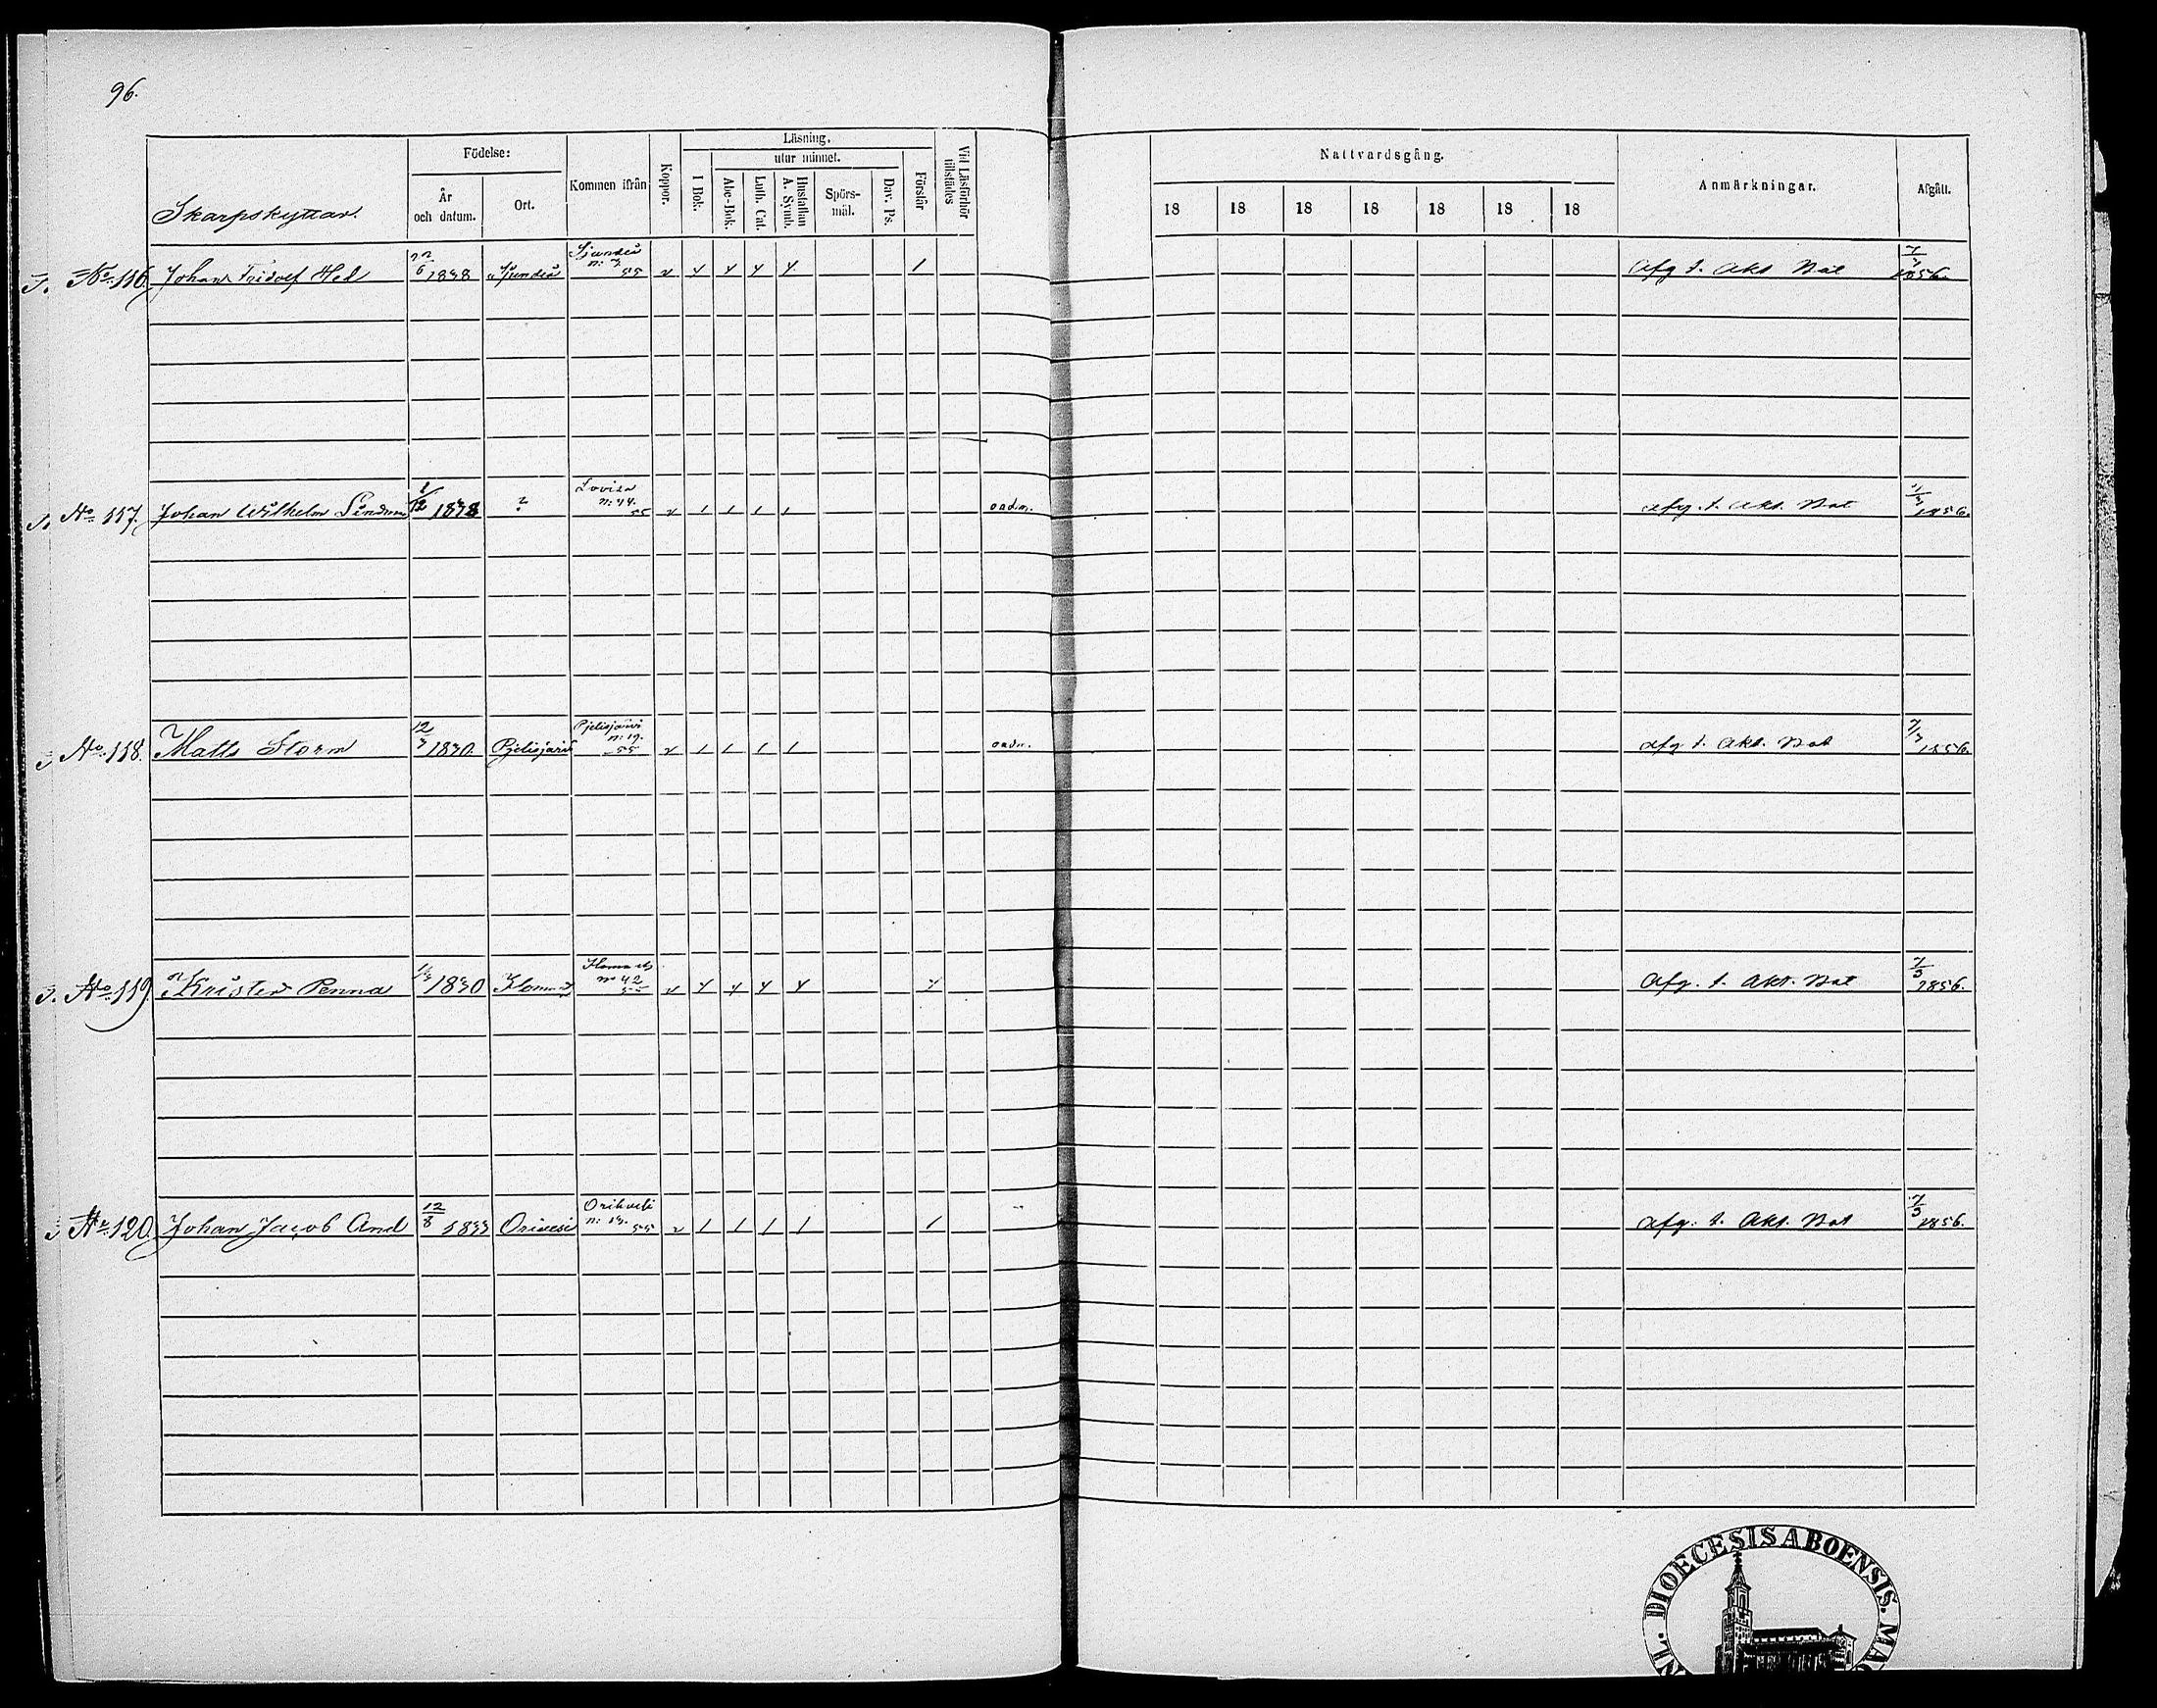 96.
Skarpskyttar.
Födelse:
År och datum.
Ort.
Kommen ifrån
Koppor.
Läsning.
utur minnet.
I Bok.
Abc-Bok.
Luth. Cat.
Hustaflan A. Symb.
Spörs-mål.
Dav. Ps.
Förstår
Vid Läsförhör tillstädes
Nattvardsgång.
18 18 18 18 18 18 18
Anmärkningar.
Afgått.
No 116. Johan Fridolf Hed 1838 Sjundeå Sjundeå 55 afg t. Akt Bat 1856.
No 117. Johan Wilhelm 1/12 1838 ? Lovisa n: 44. 55 oadm. afg. t. Akt. Bat 1856.
No 118. Matts Storm 12/3 1830 Pjelisjärvi Pjelisjärvi n: 19. 55 oadm. afg t. Akt. Bat 1856.
No 119. Krister Penna 1830 Ilomants Ilomants no 42 55 Afg. t. Akt. Bat 1856.
No 120. Johan Jacob And 12/8 1833 Orivesi Orihvesi 55 afg. t. Akt. Bat 1856.
DIOECESIS ABOENSIS.